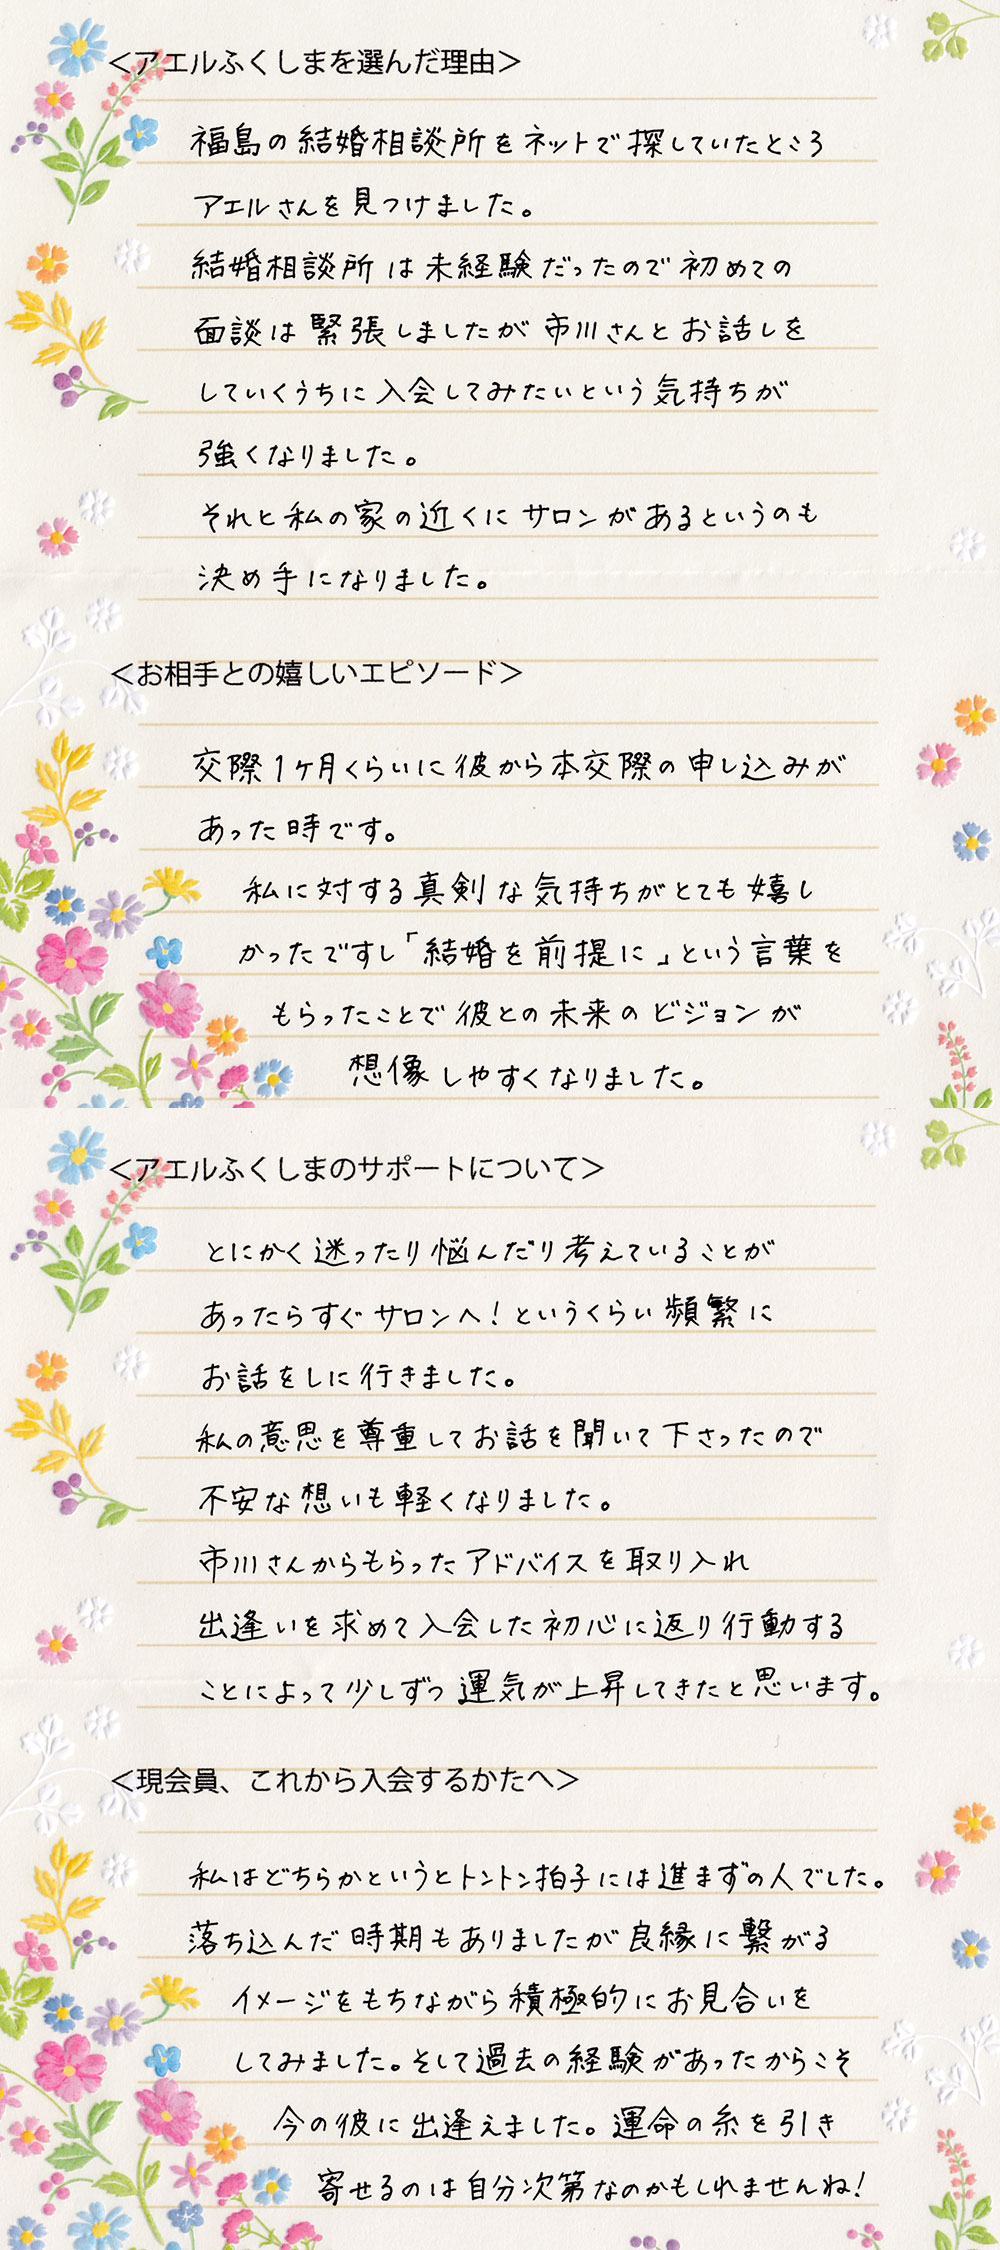 ＜アエルふくしまを選んだ理由＞
福島の結婚相談所をネットで探していたところ
アエルさんを見つけました。
結婚相談所は未経験だったので初めての
面談は緊張しましたが市川さんとお話しを
していくうちに入会してみたいという気持ちが
強くなりました。
それと私の家の近くにサロンがあるというのも
決め手になりました。
＜お相手との嬉しいエピソード＞
交際1ヶ月くらいに彼から本交際の申し込みが
あった時です。
私に対する真剣な気持ちがとても嬉し
かったですし「結婚を前提に」という言葉を
もらったことで彼との未来のビジョンが
想像しやすくなりました。
＜アエルふくしまのサポートについて＞
とにかく迷ったり悩んだり考えていることが
あったらすぐサロンへ！というくらい頻繁に
お話をしに行きました。
私の意思を尊重してお話を聞いて下さったので
不安な想いも軽くなりました。
市川さんからもらったアドバイスを取り入れ
出逢いを求めて入会した初心に返り行動する
ことによって少しずつ運気が上昇してきたと思います。
＜現会員、これから入会するかたへ＞
私はどちらかというとトントン拍子には進まずの人でした。
落ち込んだ時期もありましたが良縁に繋がる
イメージをもちながら積極的にお見合いを
してみました。そして過去の経験があったからこそ
今の彼に出逢えました。運命の糸を引き
寄せるのは自分次第なのかもしれませんね！